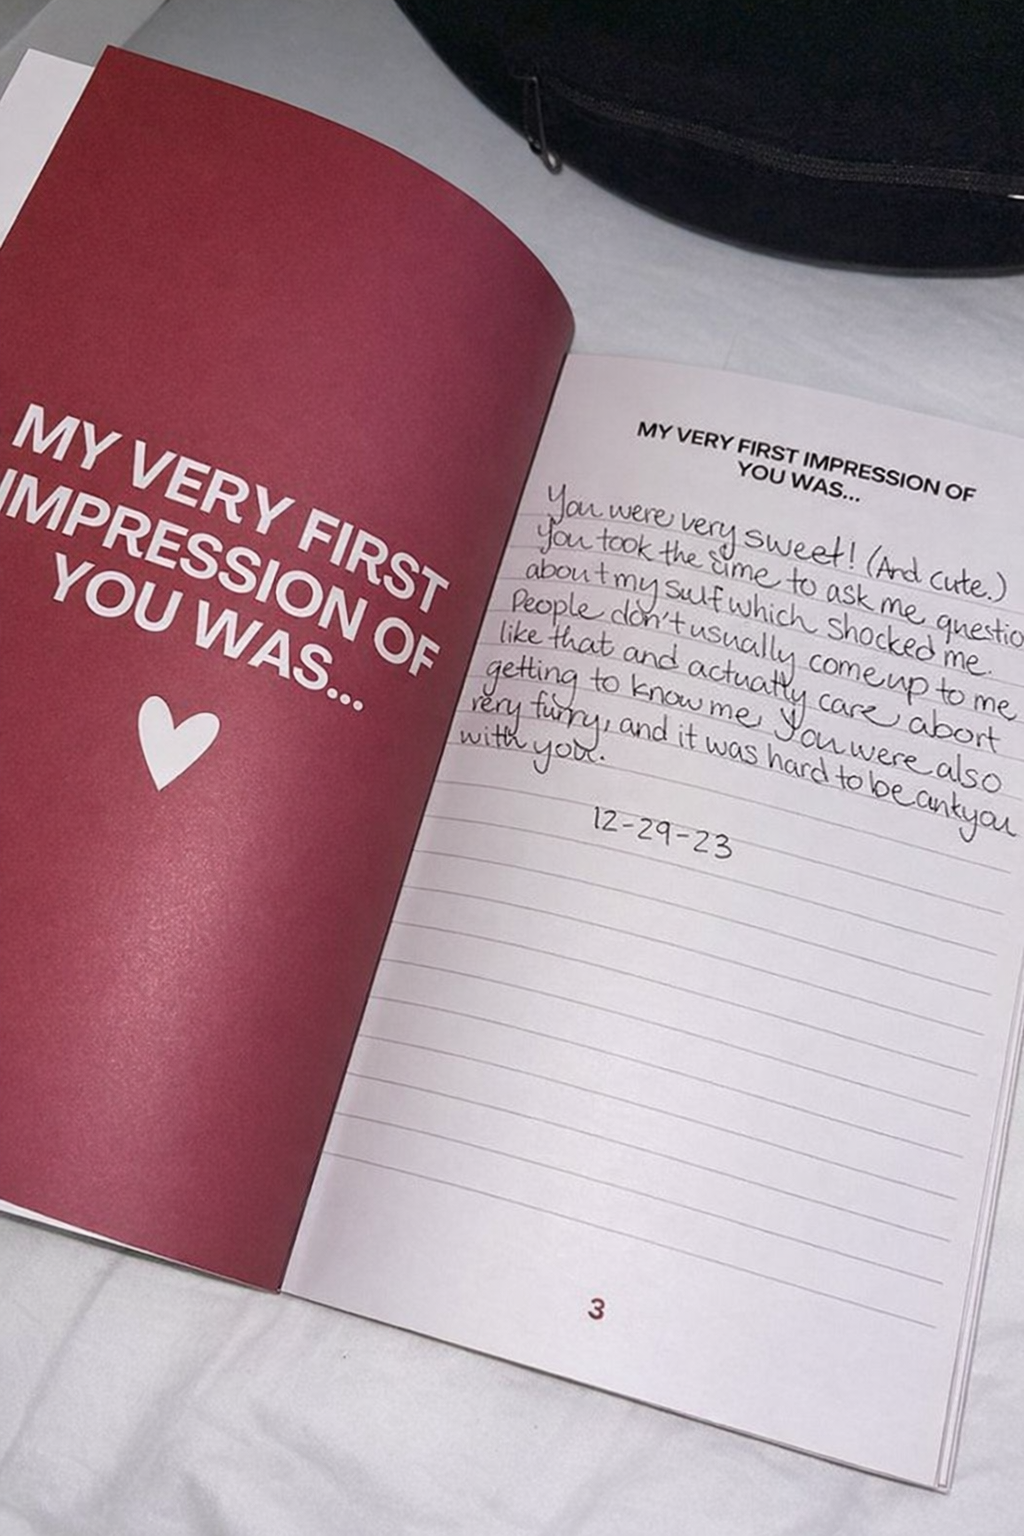 MY VERY FIRST
IMPRESSION OF
YOU WAS...
MY VERY FIRST IMPRESSION OF
YOU WAS...
You were very sweet! (And cute.)
You took the time to ask me questio
about my sulf which shocked me.
People don't usually come up to me
like that and actually care abort
getting to know me. You were also
very furry, and it was hard to be ankyou
with you.
12-29-23
3